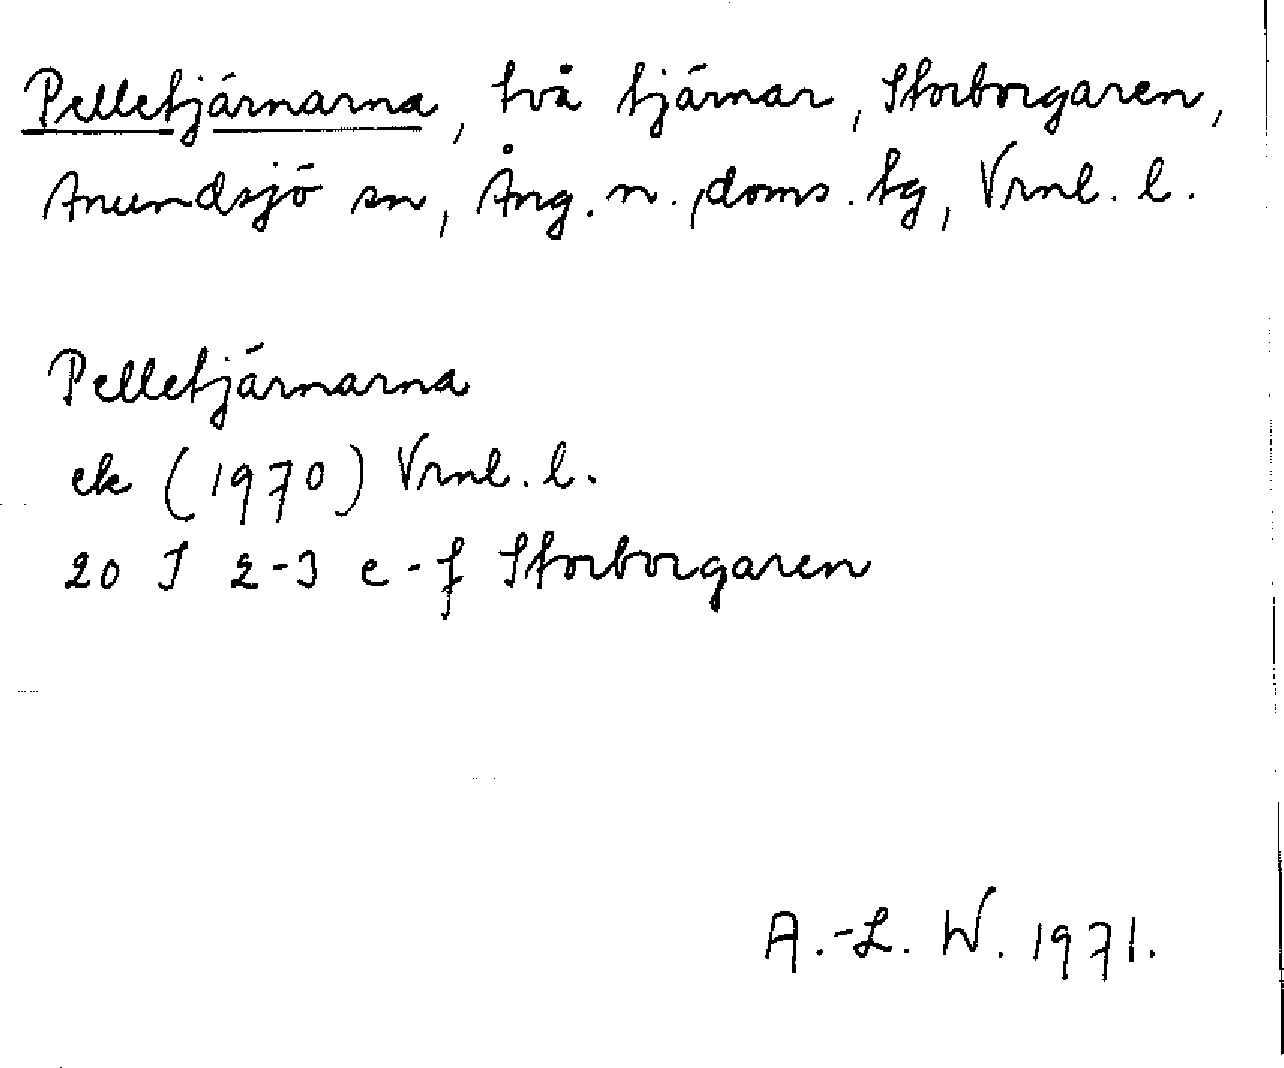 Pelletjärnarna, två tjärnar, Storborgaren,
Anundsjö sn, Ång. n. doms. tg, Vrnl. l.
Pelletjärnarna
ek (1970) Vrnl. l.
20 J 2-3 e-f Storborgaren
A.-L. W. 1971.